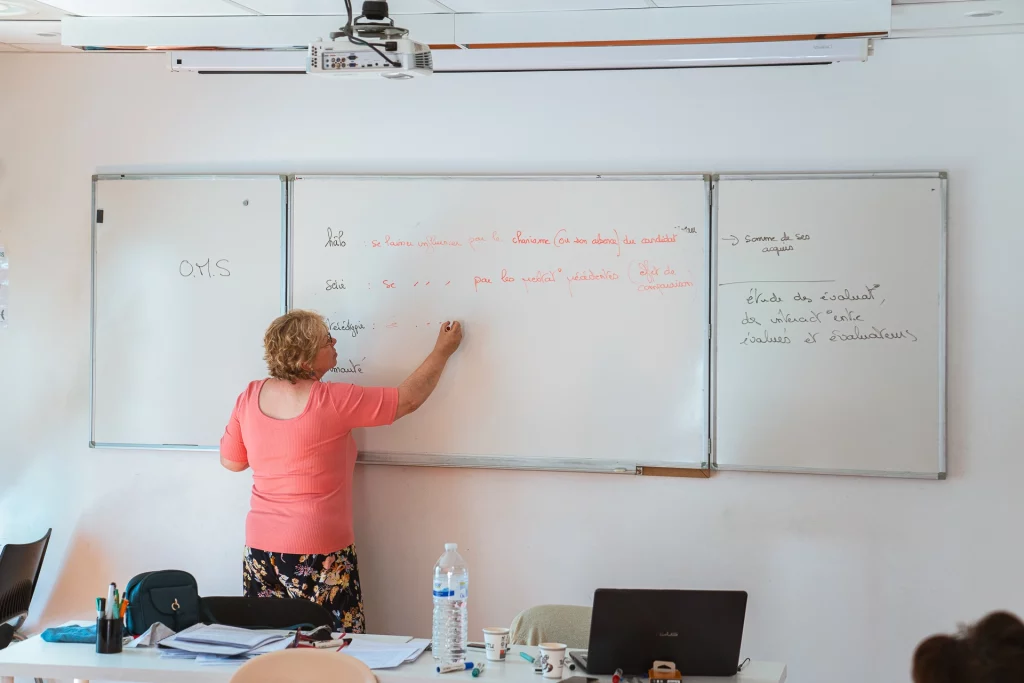 O.M.S
hâlo : se laisse influencer par le charisme (ou son absence) du candidat
: se " " " par les précédentes (effet de
comparaison
: - " "
→ Somme de ses
acquis
étude des évaluat°,
des interact° entre
évalués et évaluateurs